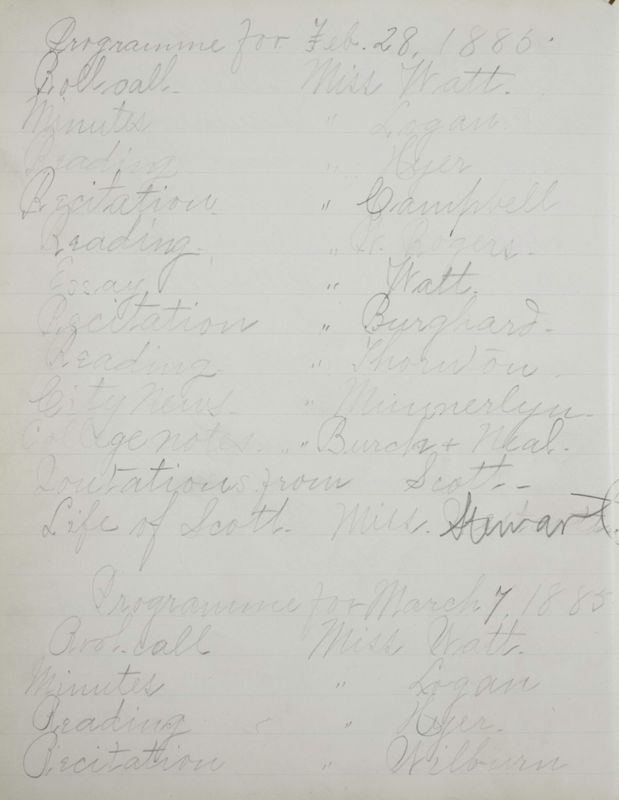 Programme for Feb. 28, 1885.
Roll call. Miss Watt.
Minutes " Logan
Reading " Hyer
Recitation " Campbell
Reading. " Rogers.
Essay " Watt.
Recitation " Burghard.
Reading " Thornton.
City News. " Minnerlyn.
College notes. " " Burch + Neal.
Quotations from Scott.-
Life of Scott. Miss. Stewart.
Programme for March 7, 1885
Roll-call Miss Watt.
Minutes " Logan
Reading " Hyer.
Recitation " Wilburn